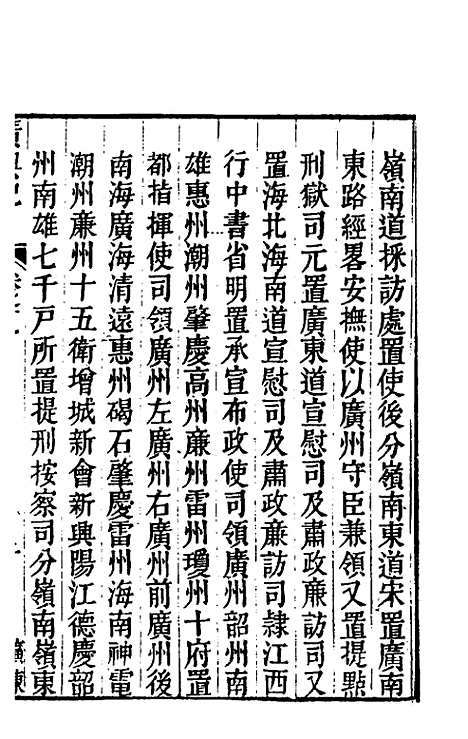 嶺南道採訪處置使後分嶺南東道宋置廣南
東路經畧安撫使以廣州守臣兼領又置提㸃
刑獄司元置廣東道宣慰司及肅政廉訪司又
置海北海南道宣慰司及肅政亷訪司隷江西
行中書省明置承宣布政使司領廣州韶州南
雄惠州潮州肇慶高州亷州雷州瓊州十府置
都指揮使司領廣州左廣州右廣州前廣州後
南海廣海清遠惠州碣石肇慶雷州海南神電
潮州亷州十五衛增城新會新興陽江德慶韶
州南雄七千戸所置提刑按察司分嶺南嶺東
廣東